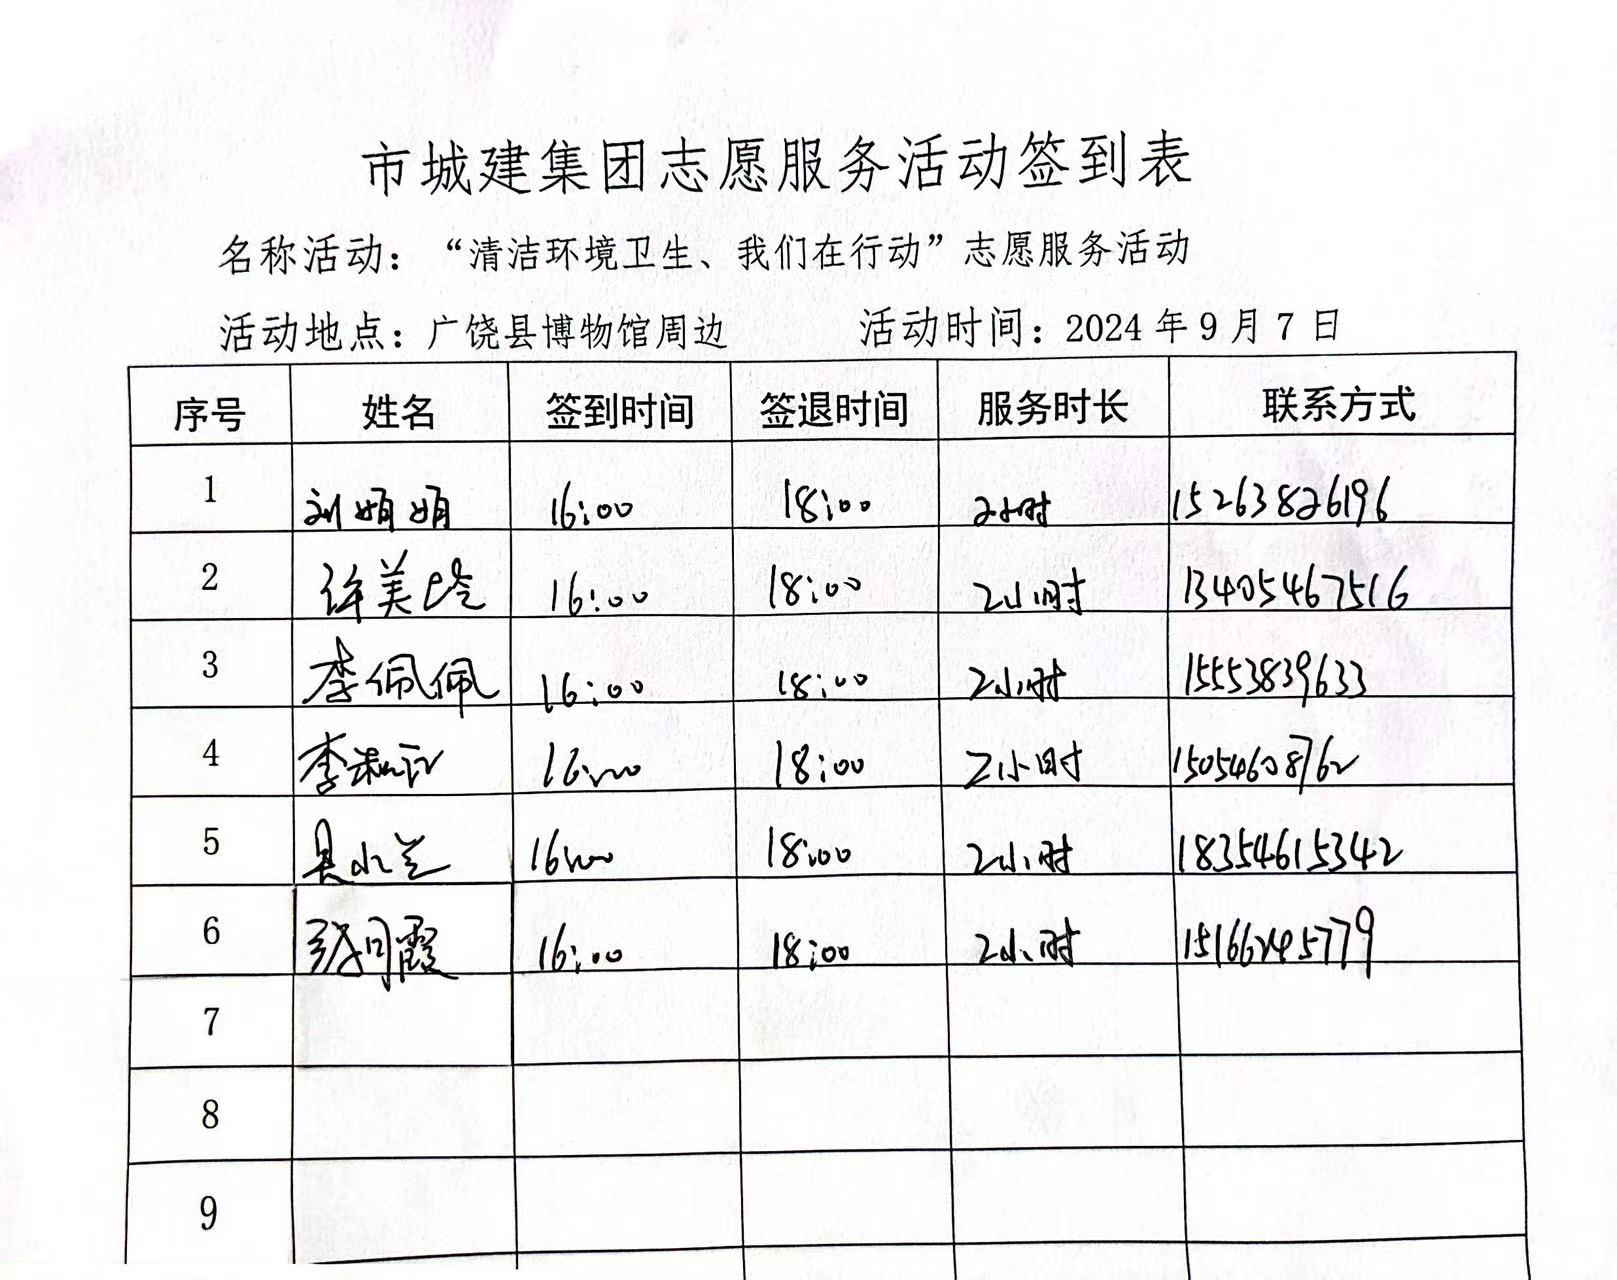 市城建集团志愿服务活动签到表
名称活动：“清洁环境卫生、我们在行动”志愿服务活动
活动地点：广饶县博物馆周边 活动时间：2024 年 9 月 7 日
序号 姓名 签到时间 签退时间 服务时长 联系方式
1 刘娟娟 16:00 18:00 2小时 15263826196
2 许美玲 16:00 18:00 2小时 13405467516
3 李佩佩 16:00 18:00 2小时 15553839633
4 李 16:00 18:00 2小时 15054608762
5 吴小兰 16:00 18:00 2小时 18354615342
6 张月霞 16:00 18:00 2小时 15166245779
7
8
9